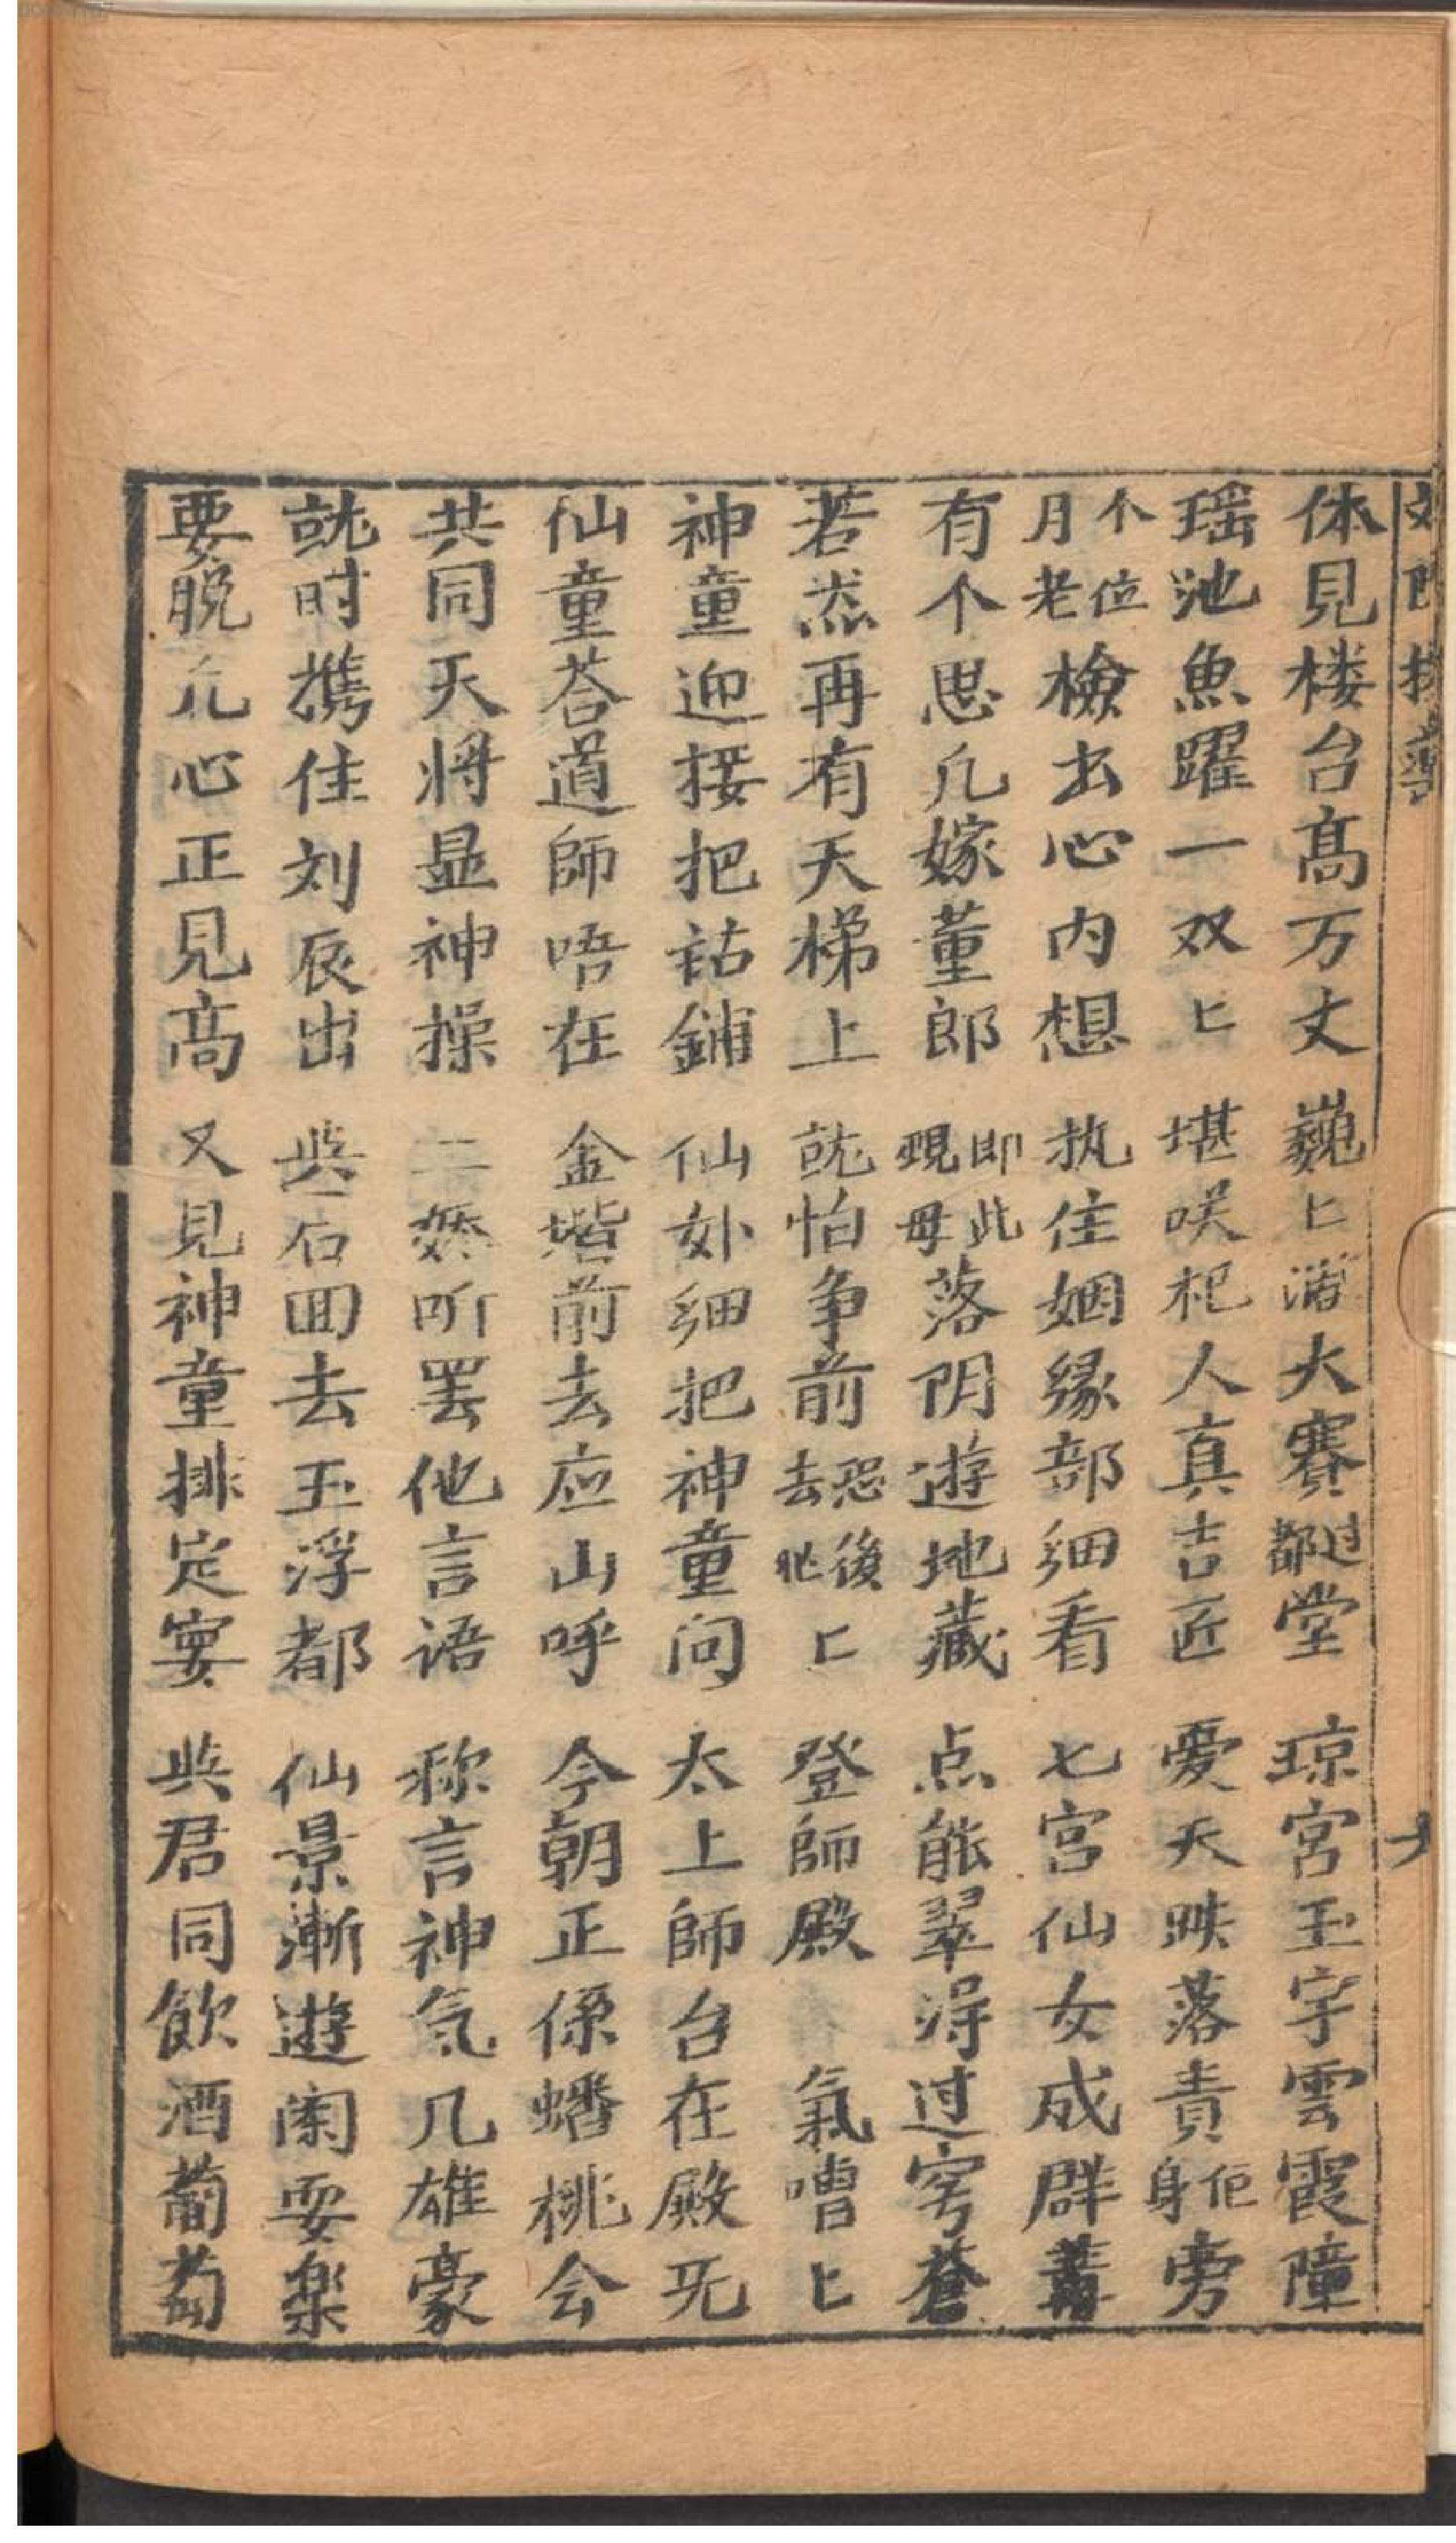 休見楼台髙万丈 巍匕 大賽过都堂 琼宮玉宇雲霞障
瑶池魚躍一双匕 堪咲杞人真吉匠 爱天跌落責佢身旁
个位月老檢出心内想 执住姻缘部细看 七宮仙女成群
有个思凡嫁董郎 即此覡毋落阴遊地藏 点能翠淂过穹蒼
若然再有天梯上 就怕争前去恐後匕 登師殿 氣嘈匕
神童迎接把詁鋪 仙妙细把神童问 太上師台在殿无
仙童荅道師唔在 金堦前去应山呼 今朝正係蟠桃会
共同天將显神操 二 听罢他言语 称言神気几雄豪
就时携住刘辰出 與石囬去玉浮都 仙景漸遊阁耍楽
要脱凢心正見髙 又見神童排定宴 與君同飲酒葡萄